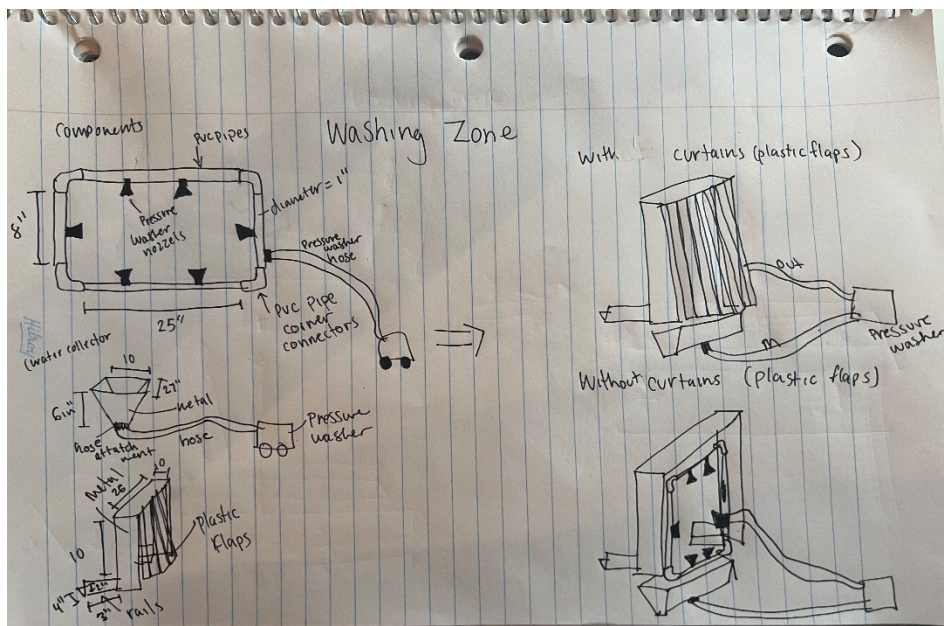 Washing Zone
Components
PVC pipes
diameter = 1"
8"
Pressure
washer
nozzels
Pressure washer
hose
25"
PVC Pipe
corner
connectors
(water collector
10
27"
6in
metal
hose
attatch
ment
hose
Pressure
washer
metal
26
10
10
Plastic
flaps
4"
3"
rails
With curtains (plastic flaps)
out
in
Pressure
washer
Without curtains (plastic flaps)